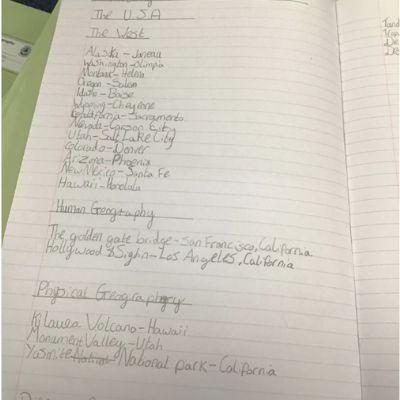 The U.S.A
The West
Alaska - Juneau
Washington - Olimpia
Montana - Helena
Oregon - Salem
Idaho - Boise
Wyoming - Cheyenne
California - Sacramento
Nevada - Carson City
Utah - Salt Lake City
Colorado - Denver
Arizona - Phoenix
New Mexico - Santa Fe
Hawaii - Honolulu
Human Geography
The golden gate bridge - San Francisco, California
Hollywood Sighn - Los Angeles, California
Physical Geography
Kilauea Volcano - Hawaii
Monument Valley - Utah
Yosmite National park - California